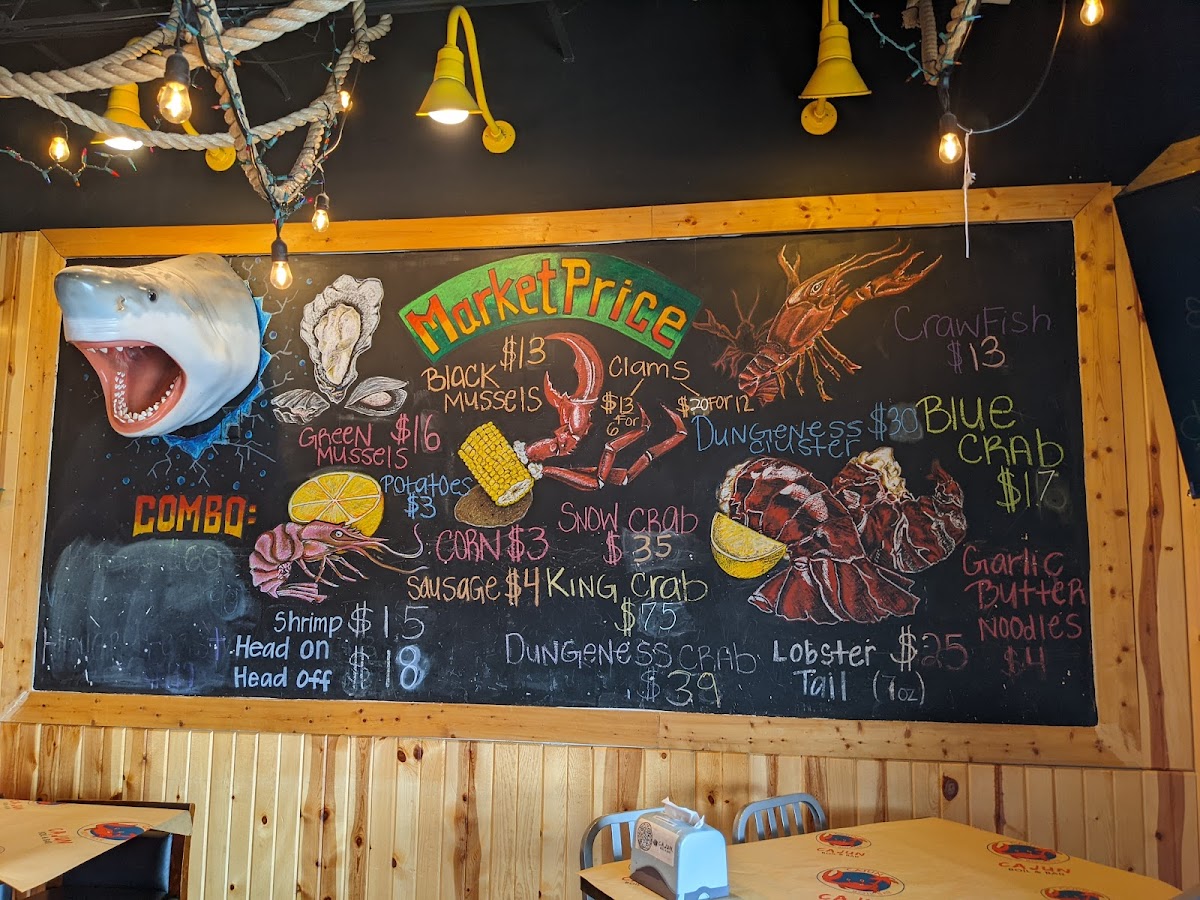 Market Price
Black $13
Mussels
Clams
$13 $20 for 12
for
6
CrawFish
$13
Green $16
Mussels
Potatoes
$3
Dungeness $30
cluster
Blue
Crab
$17
COMBO:
Corn $3
Snow Crab
$35
Sausage $4
King Crab
$75
Garlic
Butter
Noodles
$4
Shrimp $15
Head on
Head off $18
Dungeness Crab
$39
Lobster $25
Tail (7oz)
CAJUN
CAJUN
BOIL & BAR
CAJUN
CAJUN
BOIL & BAR
CAJUN